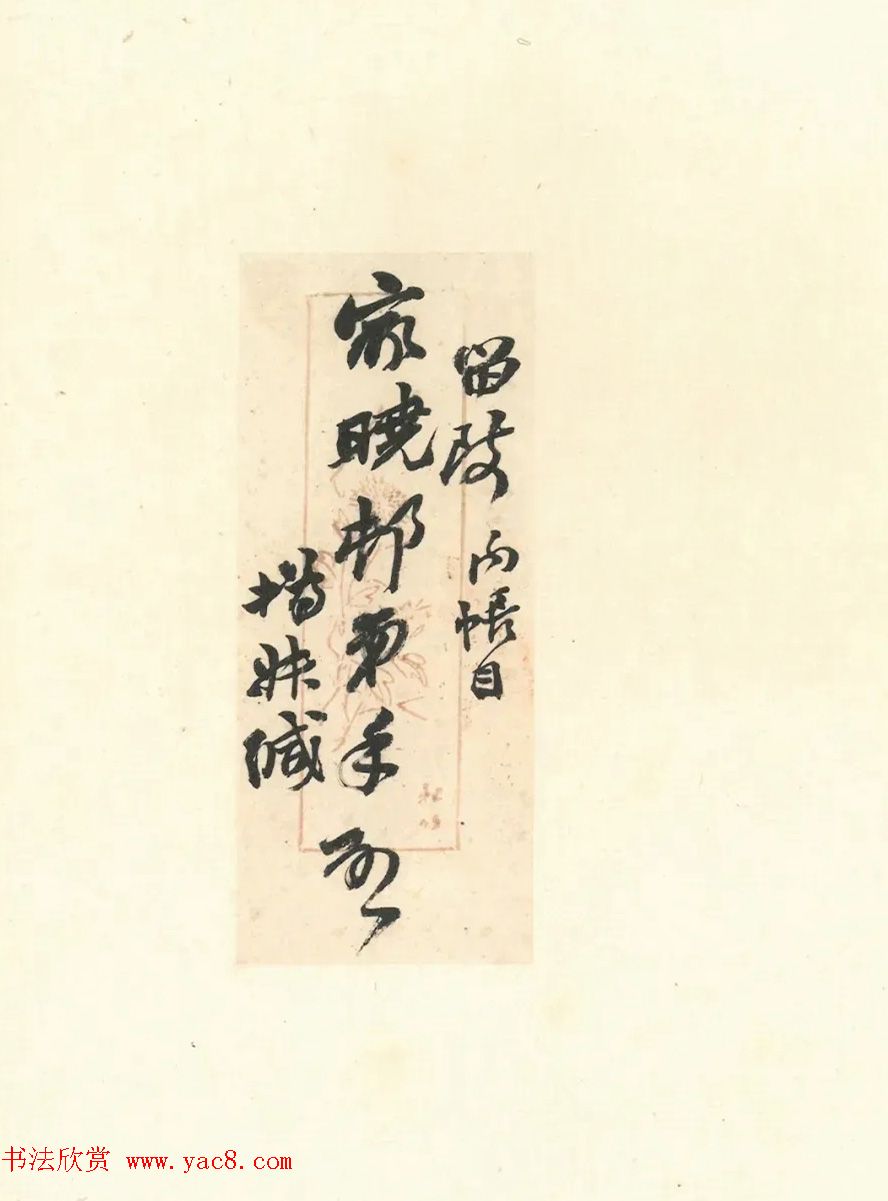 留陵 內帳目
家曉邨弟手
妹緘
书法欣赏 www.yac8.com